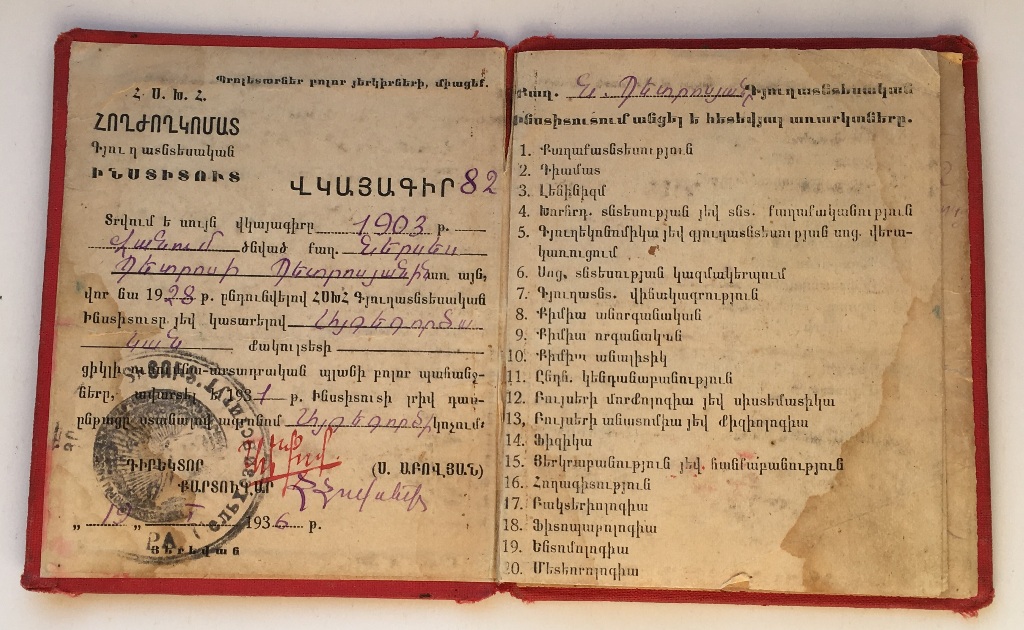 Պրոլետարներ բոլոր յերկիրների, միացեք.
Հ. Ս. Խ. Հ.
ՀՈՂԺՈՂԿՈՄԱՏ
Գյուղատնտեսական
ԻՆՍՏԻՏՈՒՏ
ՎԿԱՅԱԳԻՐ 82
Տրվում է սույն վկայագիրը 1903 թ.
Վանում ծնված քաղ. Ներսես
Պետրոսի Պետրոսյանին առ այն,
վոր նա 1928 թ. ընդունվելով ՀՍԽՀ Գյուղատնտեսական
Ինստիտուտը յեվ կատարելով Այգեգործա
կան Ֆակուլտետի
ցիկլի ուսումնա-արտադրական պլանի բոլոր պահանջ-
ները, ավարտել է 1931 թ. Ինստիտուտի լրիվ դաս-
ընթացը ստանալով ագրոնոմ Այգեգործի կոչում:
ԴԻՐԵԿՏՈՐ
(Ս. ԱԲՈՎՅԱՆ)
ՔԱՐՏՈՒՂԱՐ
„ 19 „ I 1936 թ.
ՅԵՐԵՎԱՆ
Քաղ. Ն. Պետրոսյանը Գյուղատնտեսական
Ինստիտուտում անցել է հետեվյալ առարկաները.
1. Քաղաքատնտեսություն
2. Դիամատ
3. Լենինիզմ
4. Խորհրդ. տնտեսության յեվ տնտ. քաղաքականություն
5. Գյուղեկոնոմիկա յեվ գյուղատնտեսության սոց. վերա-
կառուցում
6. Սոց. տնտեսության կազմակերպում
7. Գյուղատնտ. վիճակագրություն
8. Քիմիա անորգանական
9. Քիմիա որգանական
10. Քիմիա անալիտիկ
11. Ընդհ. կենդանաբանություն
12. Բույսերի մորֆոլոգիա յեվ սիստեմատիկա
13. Բույսերի անատոմիա յեվ ֆիզիոլոգիա
14. Ֆիզիկա
15. Յերկրաբանություն յեվ հանքաբանություն
16. Հողագիտություն
17. Բակտերիոլոգիա
18. Ֆիտոպաթոլոգիա
19. Ենտոմոլոգիա
20. Մետեորոլոգիա